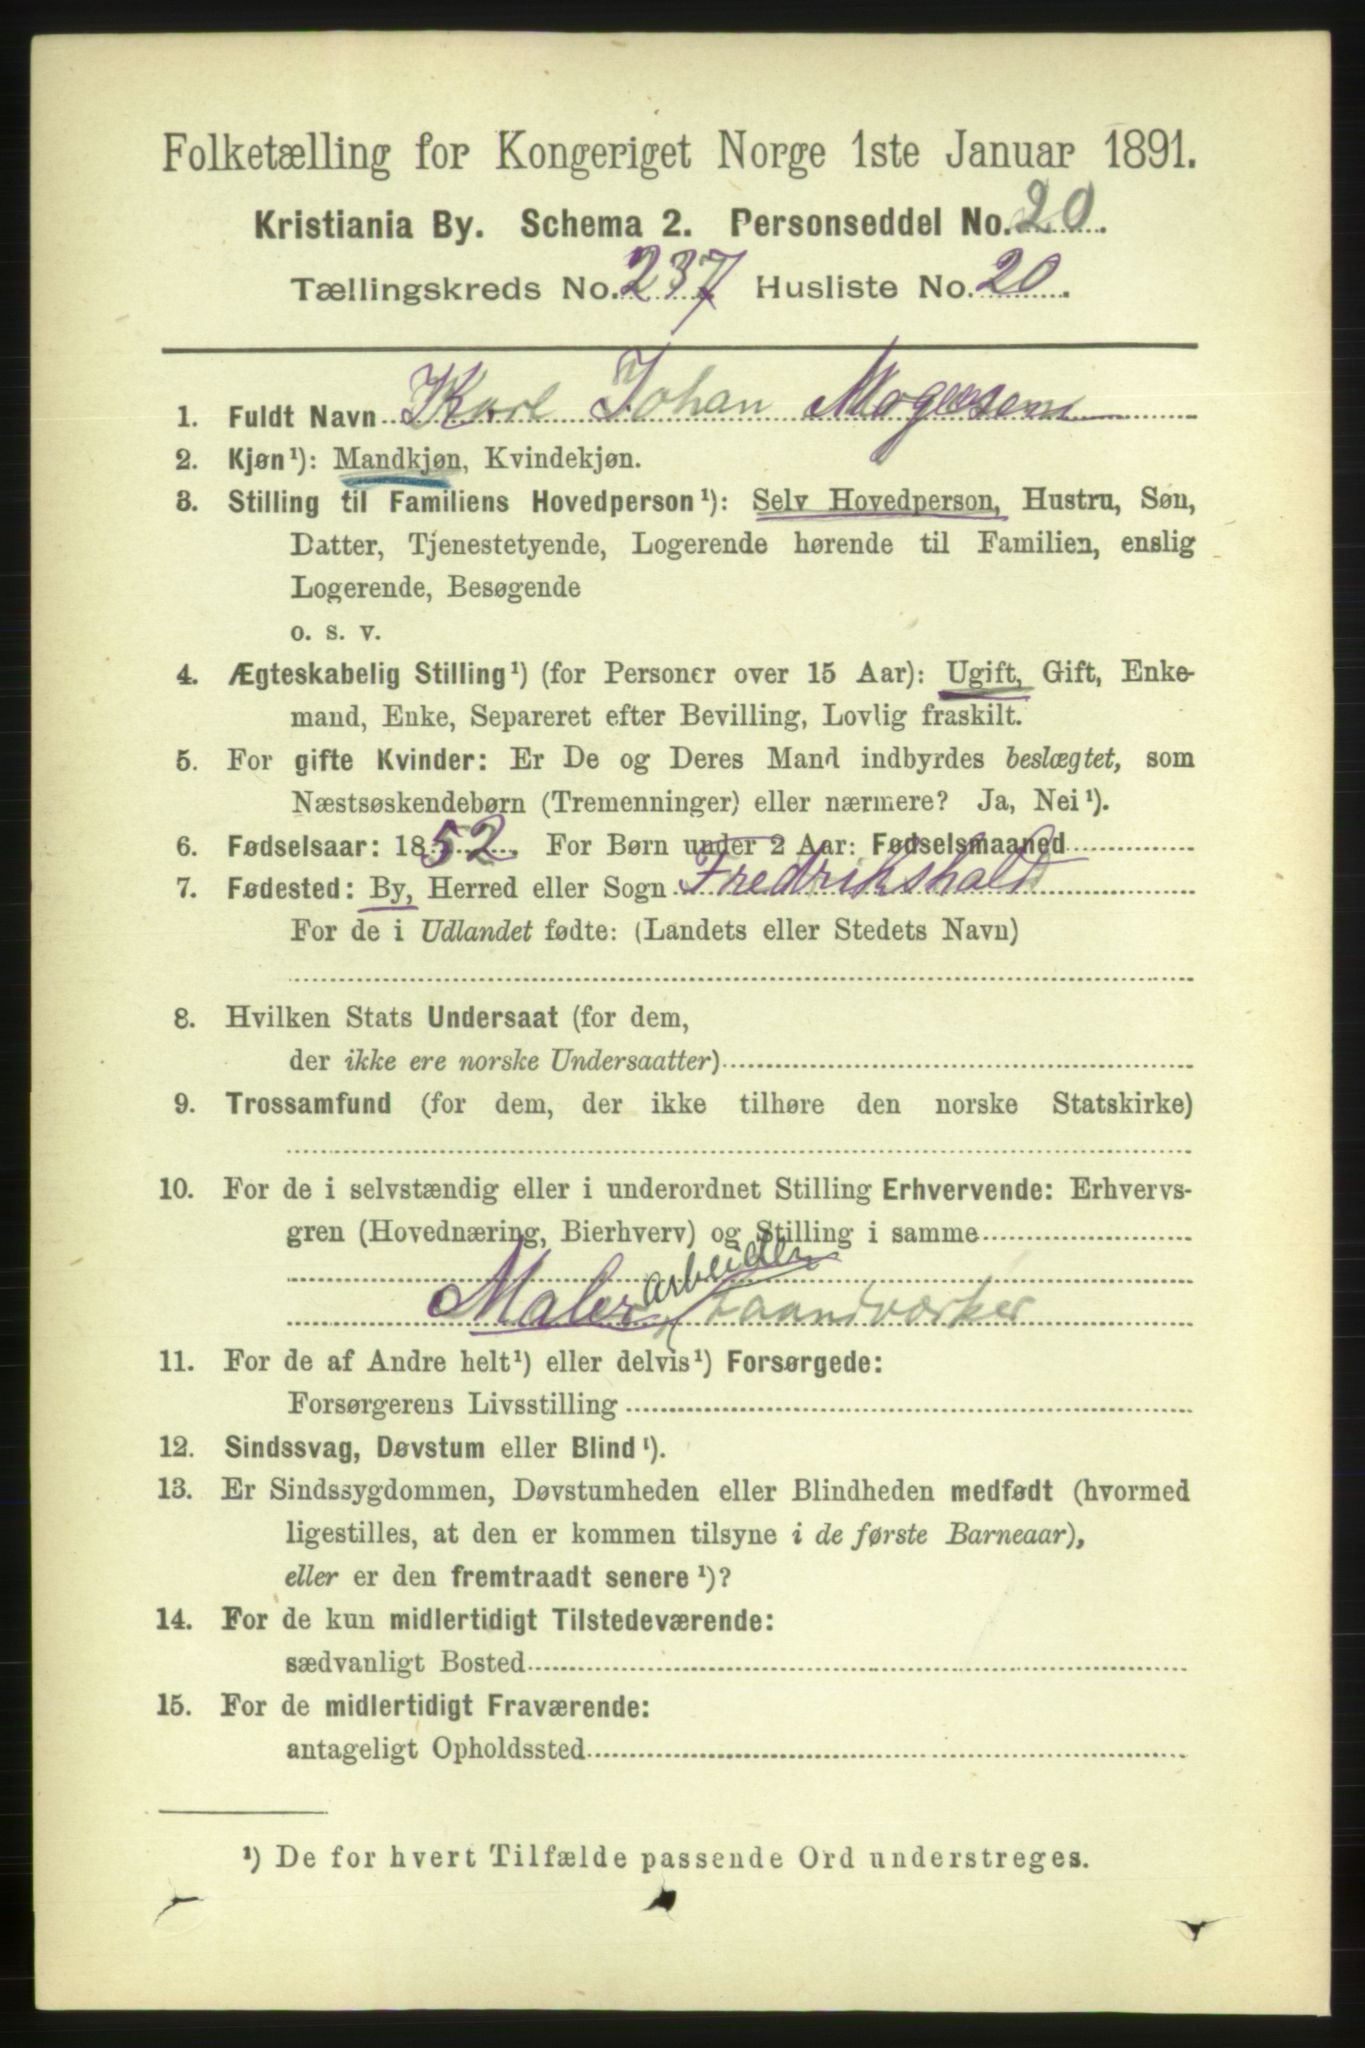 Folketælling for Kongeriget Norge 1ste Januar 1891.
Kristiania By. Schema 2. Personseddel No. 20.
Tællingskreds No. 237 Husliste No. 20.
1. Fuldt Navn Karl Johan Mogensen
2. Kjøn¹): Mandkjøn, Kvindekjøn.
3. Stilling til Familiens Hovedperson¹): Selv Hovedperson, Hustru, Søn,
Datter, Tjenestetyende, Logerende hørende til Familien, enslig
Logerende, Besøgende
o. s. v.
4. Ægteskabelig Stilling¹) (for Personer over 15 Aar): Ugift, Gift, Enke-
mand, Enke, Separeret efter Bevilling, Lovlig fraskilt.
5. For gifte Kvinder: Er De og Deres Mand indbyrdes beslægtet, som
Næstsøskendebørn (Tremenninger) eller nærmere? Ja, Nei¹).
6. Fødselsaar: 1852. For Børn under 2 Aar: Fødselsmaaned
7. Fødested: By, Herred eller Sogn Fredrikshald
For de i Udlandet fødte: (Landets eller Stedets Navn)
8. Hvilken Stats Undersaat (for dem,
der ikke ere norske Undersaatter)
9. Trossamfund (for dem, der ikke tilhøre den norske Statskirke)
10. For de i selvstændig eller i underordnet Stilling Erhvervende: Erhvervs-
gren (Hovednæring, Bierhverv) og Stilling i samme
arbeider
Maler haandværker
11. For de af Andre helt¹) eller delvis¹) Forsørgede:
Forsørgerens Livsstilling
12. Sindssvag, Døvstum eller Blind¹).
13. Er Sindssygdommen, Døvstumheden eller Blindheden medfødt (hvormed
ligestilles, at den er kommen tilsyne i de første Barneaar),
eller er den fremtraadt senere¹)?
14. For de kun midlertidigt Tilstedeværende:
sædvanligt Bosted
15. For de midlertidigt Fraværende:
antageligt Opholdssted
¹) De for hvert Tilfælde passende Ord understreges.